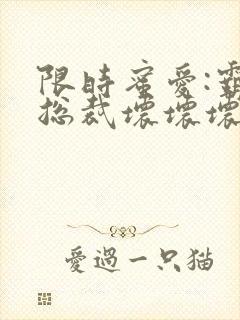 限時蜜愛:霸
總裁壞壞壞
愛過一只猫